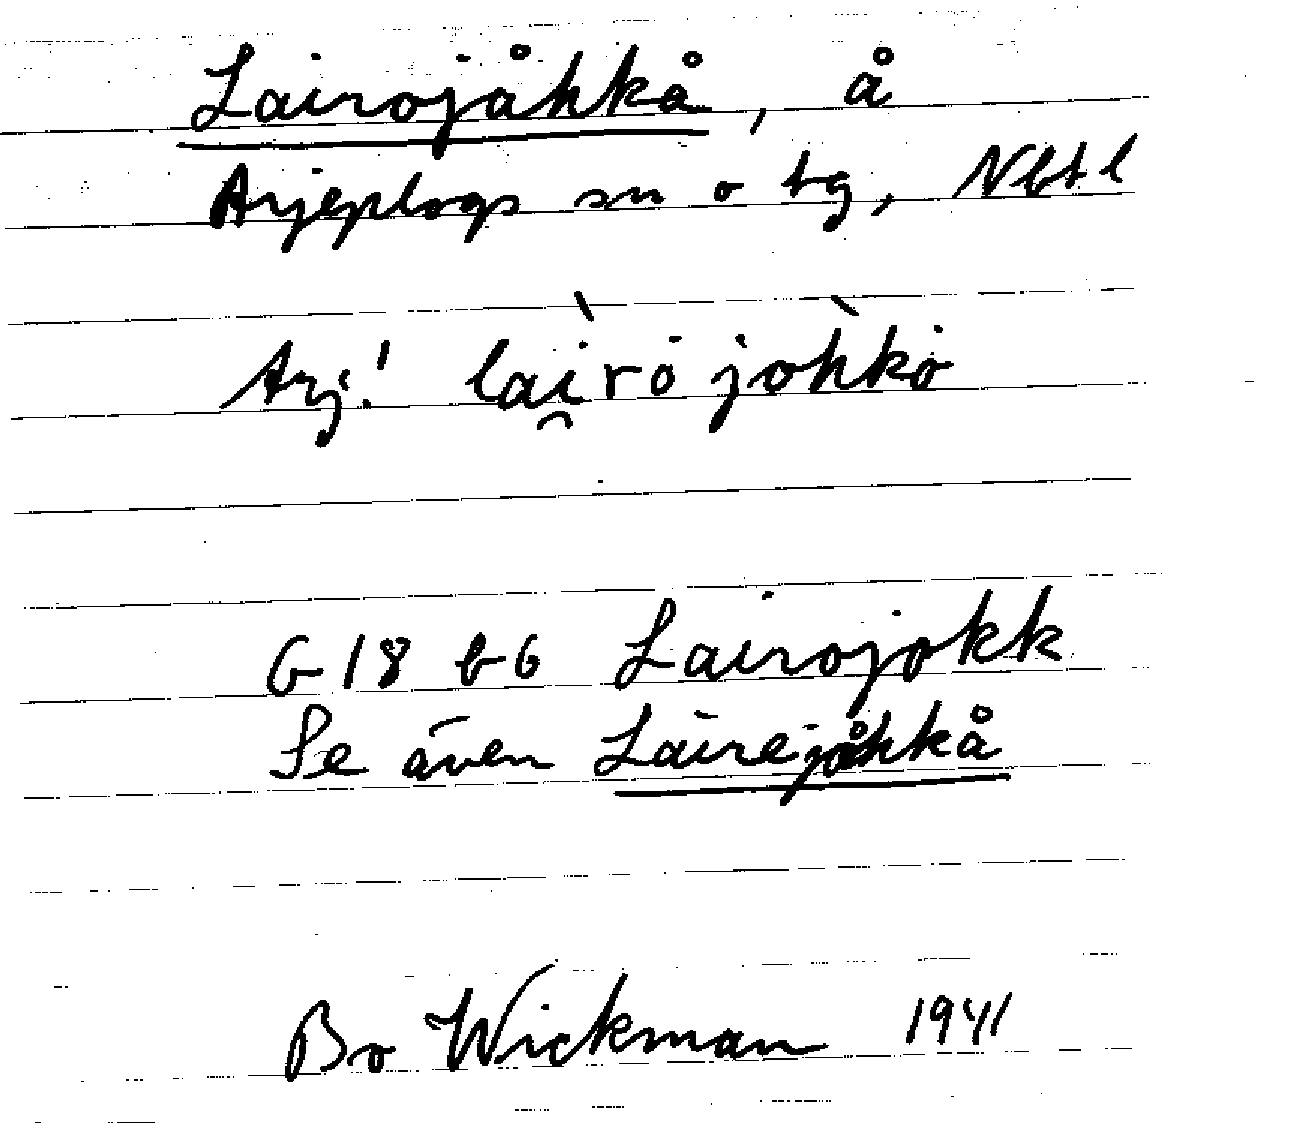 Lairojåhkå, å
Arjeplogs sn o tg, Nbtl
Arj! lai̯rȯ̀ johkȯ̀
G 18 b6 Lairojokk
Se även Lairejåhkå
Bo Wickman 1941